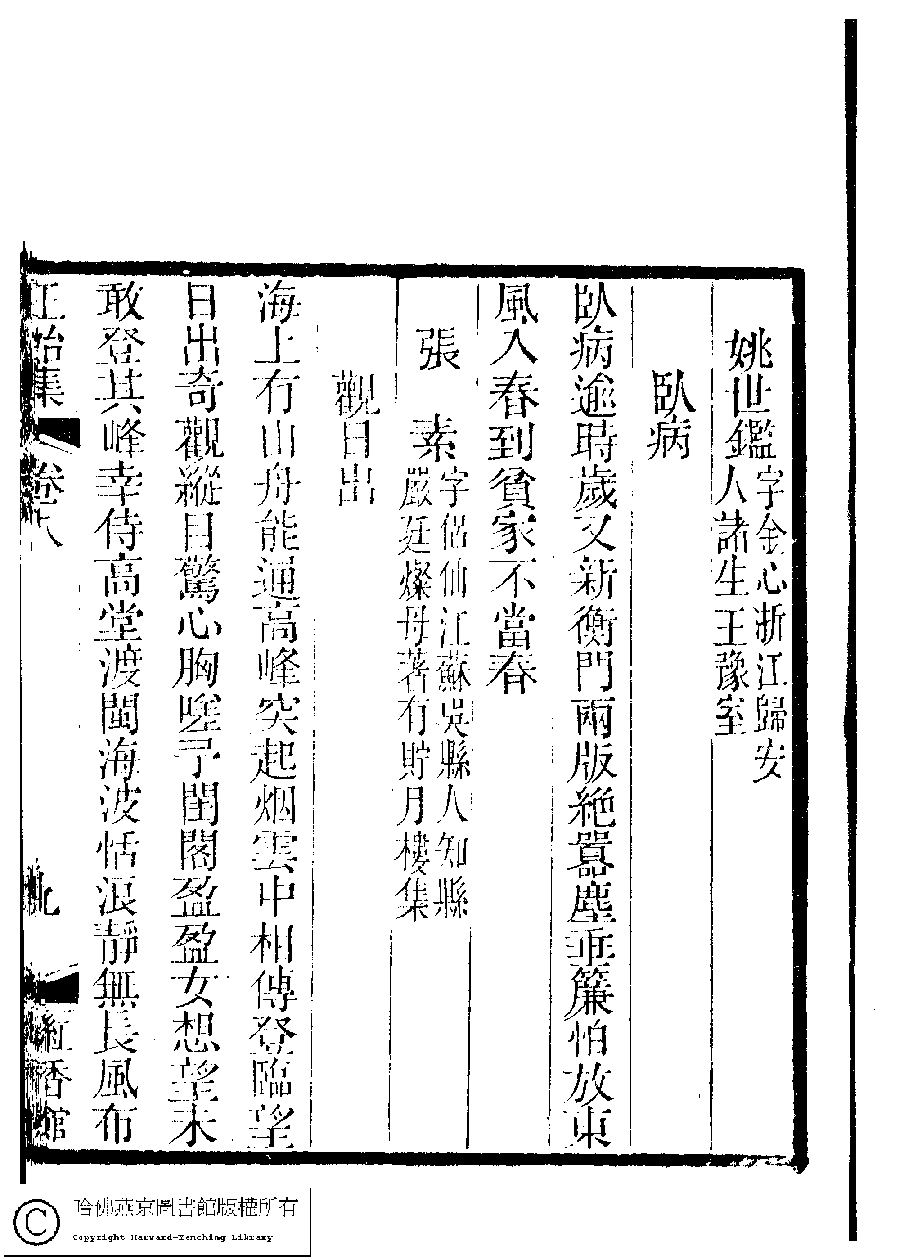 姚世鑑字金心浙江歸安
人諸生王豫室
臥病
臥病逾時歲又新衡門兩版絶囂塵垂簾怕放東
風入春到貧家不當春
張素字侶仙江蘇吳縣人知縣
嚴廷燦母著有貯月樓集
觀日出
海上有山舟能通高峰突起烟雲中相傳登臨望
日出奇觀縱目驚心胸嗟予閨閣盈盈女想望未
敢登其峰幸侍高堂渡閩海波恬浪靜無長風布
正始集 卷八 紅香館
哈佛燕京圖書館版權所有
Copyright Harvard-Yenching Library